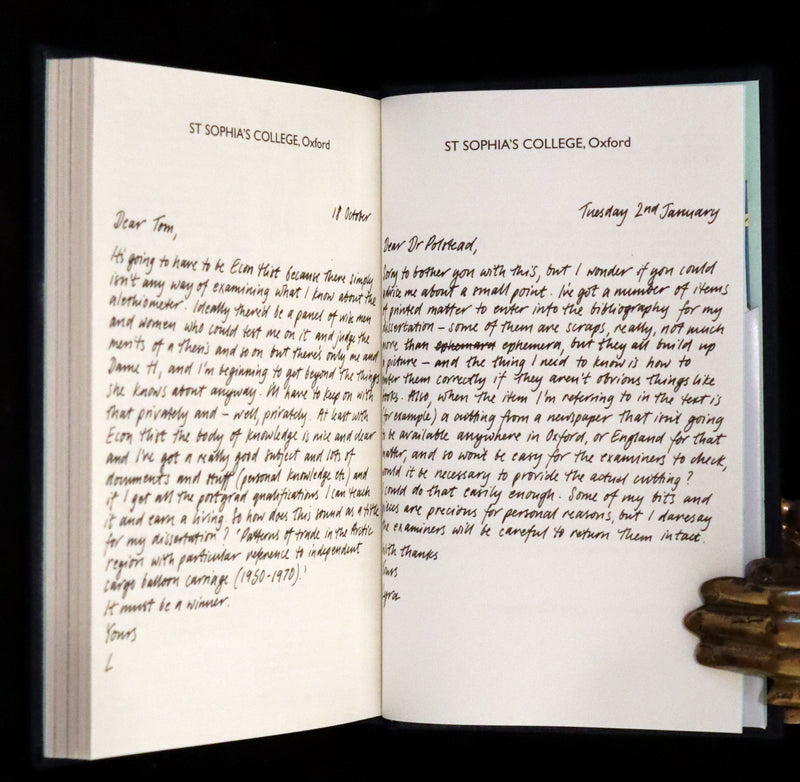 ST SOPHIA'S COLLEGE, Oxford
18 October
Dear Tom,
It's going to have to be Econ Hist because there simply
isn't any way of examining what I know about the
alethiometer. Ideally there'd be a panel of wise men
and women who could test me on it and judge the
merits of a thesis and so on but there's only me and
Dame H, and I'm beginning to get beyond the things
she knows about anyway. I'll have to keep on with
that privately and – well, privately. At least with
Econ Hist the body of knowledge is nice and clear
and I've got a really good subject and lots of
documents and stuff (personal knowledge etc) and
if I get all the postgrad qualifications I can teach
it and earn a living. So how does this sound as a title
for my dissertation? 'Patterns of trade in the Arctic
region with particular reference to independent
cargo balloon carriage (1950-1970).'
It must be a winner.
Yours
L
ST SOPHIA'S COLLEGE, Oxford
Tuesday 2nd January
Dear Dr Polstead,
Sorry to bother you with this, but I wonder if you could
advise me about a small point. I've got a number of items
of printed matter to enter into the bibliography for my
dissertation – some of them are scraps, really, not much
more than ephemara ephemera, but they all build up
a picture – and the thing I need to know is how to
enter them correctly if they aren't obvious things like
books. Also, when the item I'm referring to in the text is
(for example) a cutting from a newspaper that isn't going
to be available anywhere in Oxford, or England for that
matter, and so won't be easy for the examiners to check,
would it be necessary to provide the actual cutting?
I could do that easily enough. Some of my bits and
pieces are precious for personal reasons, but I daresay
the examiners will be careful to return them intact.
With thanks
Yours
Lyra